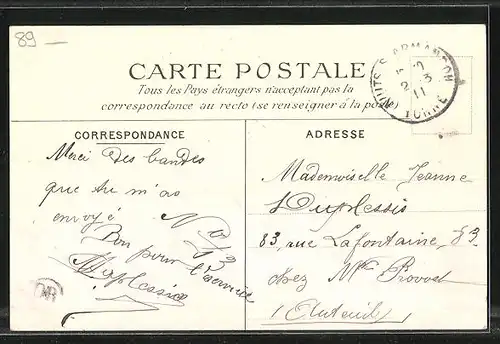 89
CARTE POSTALE
Tous les Pays étrangers n'acceptant pas la
correspondance au recto (se renseigner à la poste)
NUITS-S-ARMANCON
YONNE
CORRESPONDANCE
Merci des bandes
que tu m'as
envoyé
Bon pour
Duplessis
ADRESSE
Mademoiselle Jeanne
Duplessis
83, rue Lafontaine, 83
chez Mlle Provost
Auteuil